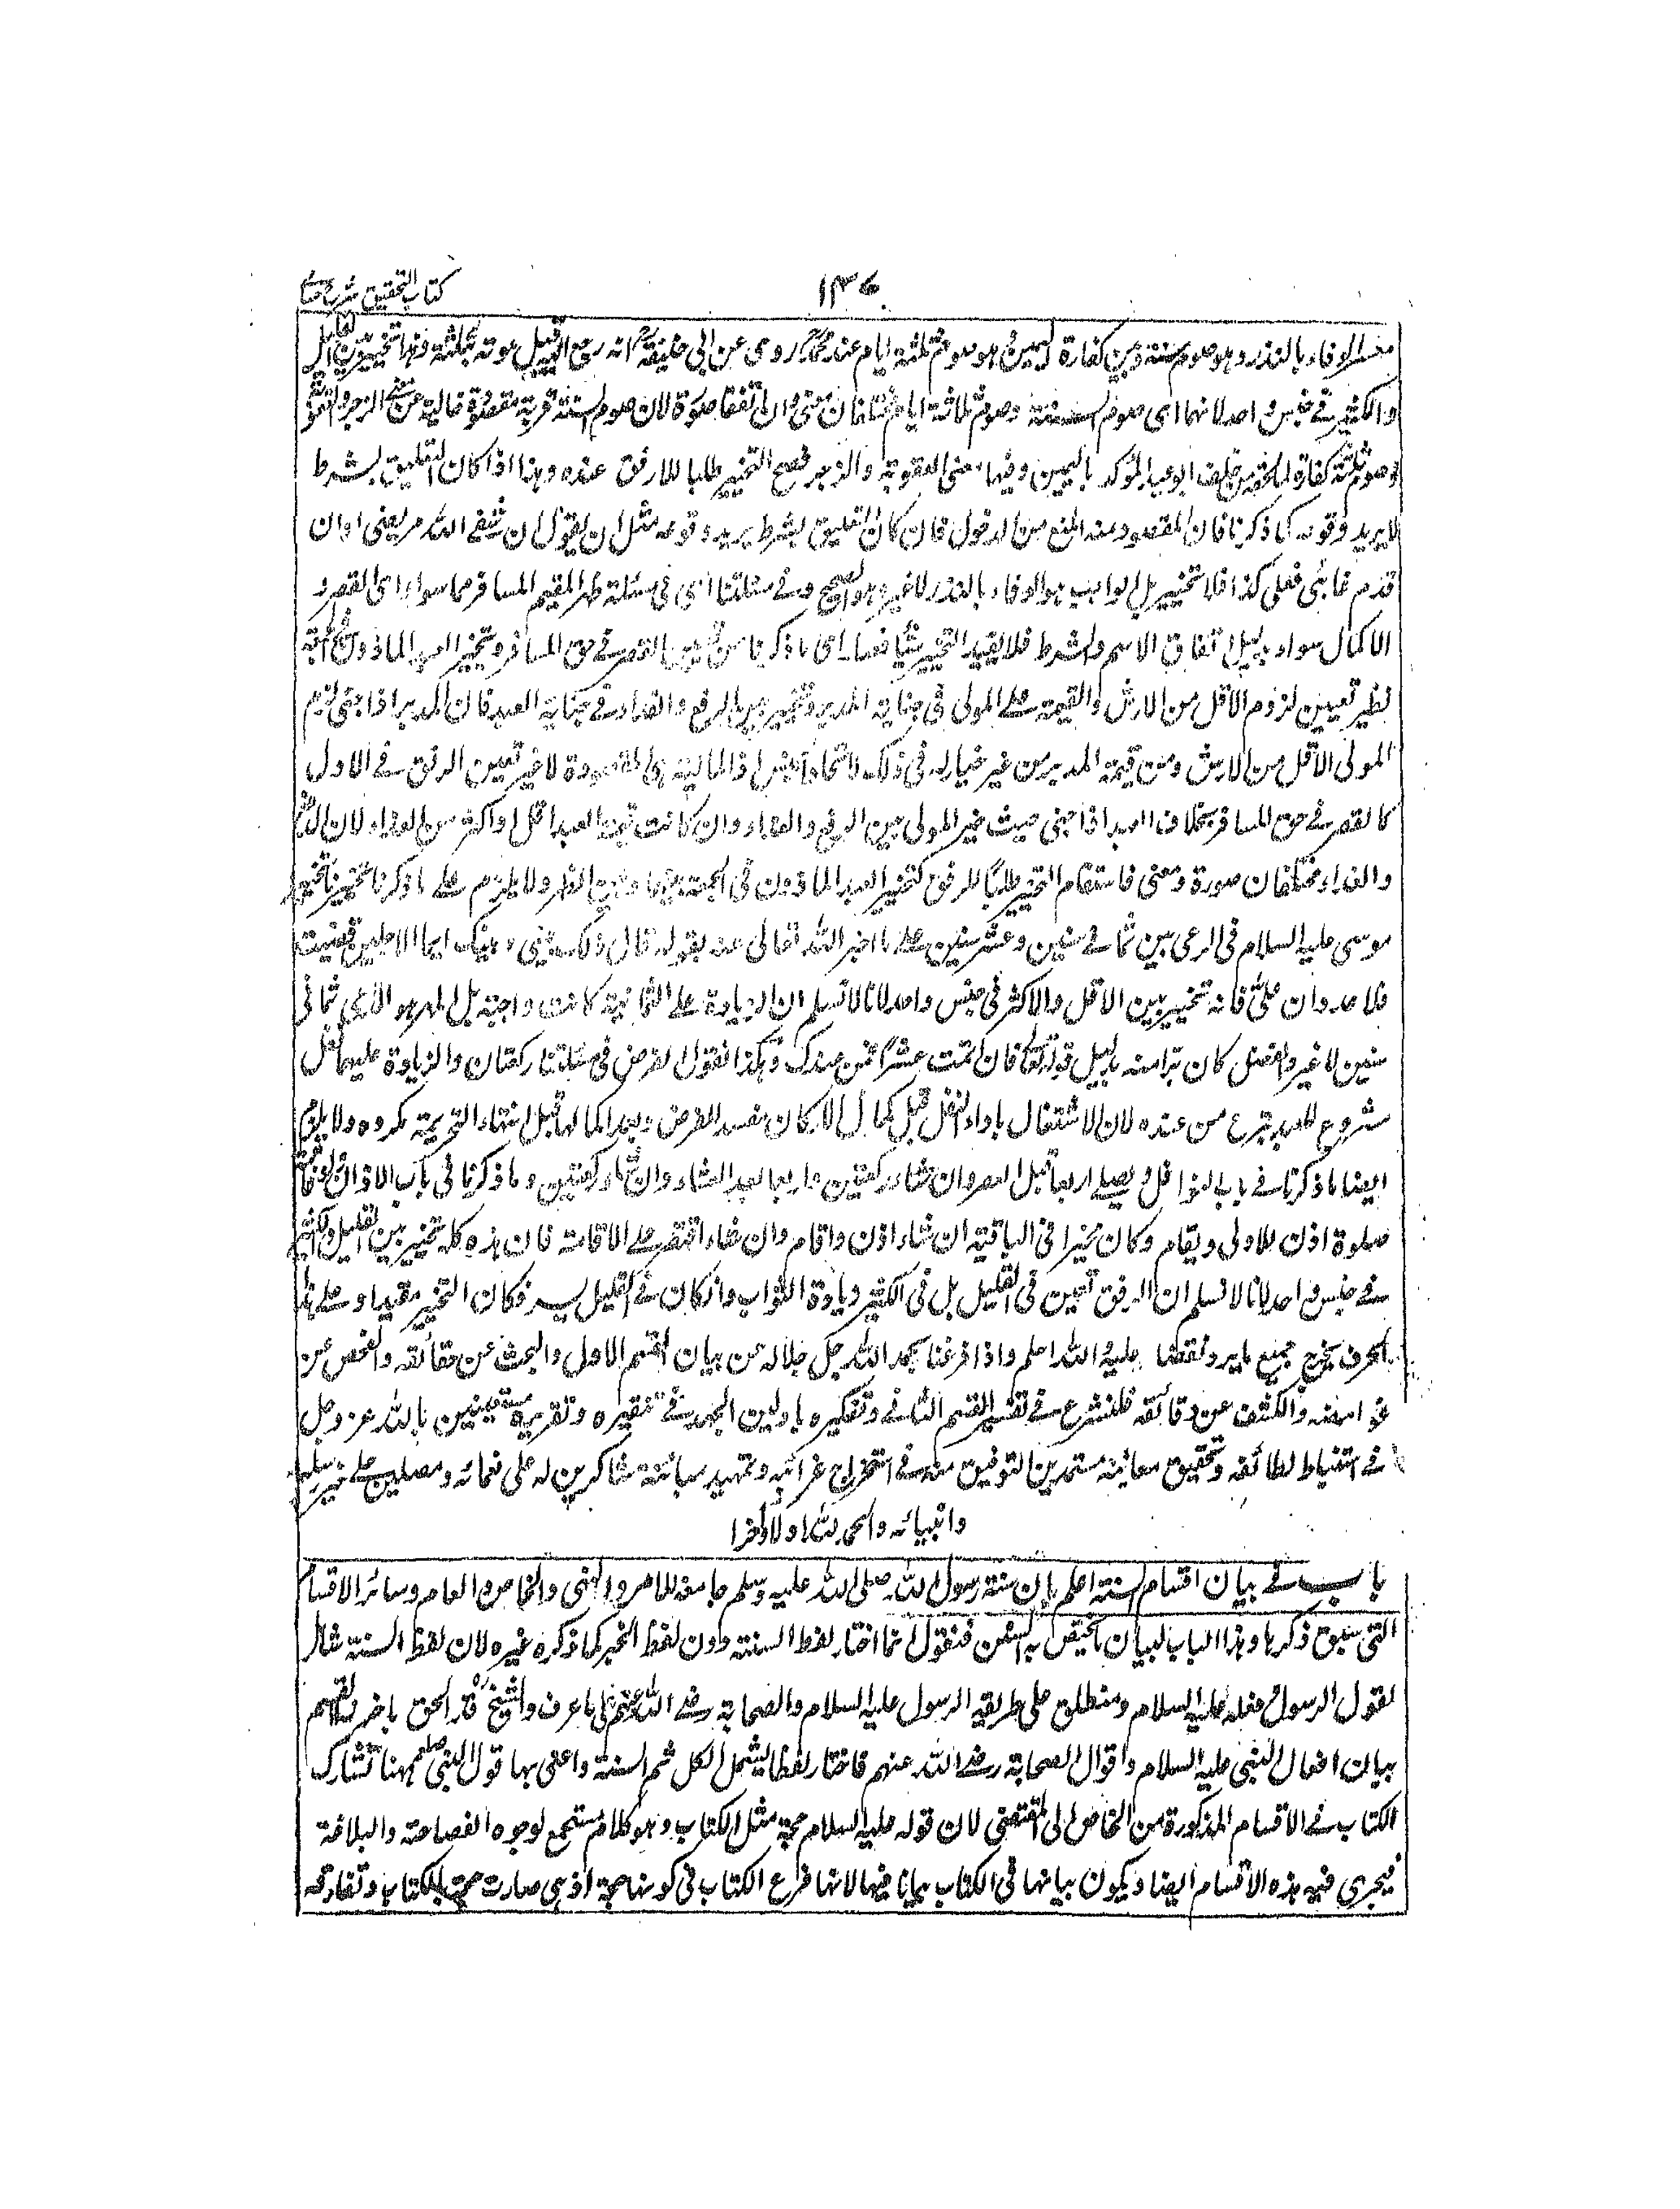 ١٣٧
كتاب التحقيق شرح حسامي
معسر الوفاء بالنذر وهو صوم سنة وبين كفارة اليمين وهو صوم ثلثة ايام عند محمد روى عن ابى حنيفة انه رجع اليه قبيل موته بثلثة وهذا تخيير بين القليل
والكثير فے جنس واحد لانهما اى صوم السنة وصوم ثلاثة ايام مختلفان معنى وان اتفقا صورة لان صوم السنة قربة مقصودة خالية عن معنى الزجر والعقوبة
وصوم ثلثة كفارة لما لحقه من خلف الوعد المؤكد باليمين وفيها معنى العقوبة والزجر فصح التخيير طلبا للارفق عنده وهذا اذا كان التعليق بشرط
لا يريد وقوعه كما ذكرنا فان المقصود منه المنع من الدخول فان كان التعليق بشرط يريد وقوعه مثل ان يقول ان شفى الله مريضى او ان
قدم غائبى فعلى كذا فلا تخيير بل الواجب هو الوفاء بالنذر لا غير وهو الصحيح وفے مسئلتنا اى فى مسئلة ظهر المقيم المسافر هما سواء اى القصر و
الاكمال سواء بدليل اتفاق الاسم والشرط فلا يفيد التخيير شيئا فصار اى ما ذكرنا من تعين القصر فے حق المسافر وتخيير العبد الماذون فى الجمعة
نظير تعيين لزوم الاقل من الارش والقيمة على المولى فى جناية المدبر وتخييره بين الدفع والفداء فے جناية العبد فان المدبر اذا جنى لزم
المولى الاقل من الارش ومن قيمة المدبر من غير خيار له فى ذلك لاتحاد الجنس اذ المالية هى المقصودة لا غير تعين الرفق فے الاول
كالقصر فے حق المسافر بخلاف العبد اذا جنى حيث خير المولى بين الدفع والفداء وان كانت قيمة العبد اقل او اكثر من الفداء لان الدفع
والفداء مختلفان صورة ومعنى فاستقام التخيير طلبًا للرفق كتخيير العبد الماذون فى الجمعة بينها وبين الظهر ولا يلزم على ما ذكرنا تخيير
موسى عليه السلام فى الرعى بين ثمانے سنين وعشر سنين على ما اخبر الله تعالى عنه بقوله قال ذلك بينى وبينك ايما الاجلين قضيت
فلا عدوان علىّ فانه تخيير بين الاقل والاكثر فى جنس واحد لانا لا نسلم ان الزيادة على الثمانية كانت واجبة بل المهر هو الرعى ثمانى
سنين لا غير والفضل كان برا منه بدليل قوله تعالى فان اتممت عشرًا فمن عندك وهكذا نقول الفرض فى مسئلتنا ركعتان والزيادة عليهما نفل
مشروع للعبد يتبرع من عنده لان الاشتغال باداء النفل قبل اكمال الاركان مفسد للفرض وبعد اكمالها قبل انتهاء التحريمة مكروه ولا يلزم
ايضا ما ذكرنا فے باب النوافل ويصلى اربعا قبل العصر وان شاء ركعتين واربعا بعد العشاء وان شاء ركعتين وما ذكرنا فى باب الاذان
صلوة اذن للاولى ويقام وكان مخيرا فى الباقية ان شاء اذن واقام وان شاء اقتصر على الاقامة فان هذه كله تخيير بين القليل والكثير
فے جنس واحد لانا لا نسلم ان الرفق تعين فى القليل بل فى الكثير زيادة الثواب وان كان فے القليل يسر فكان التخيير مفيدا وعلى هذا
الحرف يخرج جميع ما يرد نقضا عليه والله اعلم واذا فرغنا بحمد الله جل جلاله عن بيان القسم الاول والبحث عن حقائقه والفحص عن
غوامضه والكشف عن دقائقه فلنشرع فے تقسيم القسم الثانے وتفكيره باذلين الجهد فے تنقيره وتقريره مستعينين بالله عز وجل
فے استنباط لطائفه وتحقيق معانيه مستمدين التوفيق منه فے استخراج غرائبه وتمهيد مبانيه شاكرين له على نعمائه ومصلين على خير رسله
وانبيائه والحمد لله اولا واٰخرا
باب فے بيان اقسام السنة اعلم بان سنة رسول الله صلى الله عليه وسلم جامعة للامر والنهى والخاص والعام وسائر الاقسام
التى سبق ذكرها وهذا الباب لبيان ما يختص به السنن فنقول انما اختار لفظ السنة دون لفظ الخبر كما ذكره غيره لان لفظ السنة شامل
لقول الرسول وفعله عليه السلام ومنطلق على طريقة الرسول عليه السلام والصحابة رضے الله عنهم على ما عرف والشيخ قد الحق باخر هذا القسم
بيان افعال النبى عليه السلام واقوال الصحابة رضے الله عنهم فاختار لفظا يشمل الكل ثم السنة واعنى بها قول النبى صلعم ههنا تشارك
الكتاب فے الاقسام المذكورة من الخاص الى المقتضى لان قوله عليه السلام حجة مثل الكتاب وهو كلام مستجمع لوجوه الفصاحة والبلاغة
فيجرى فيه هذه الاقسام ايضا ويكون بيانها فى الكتاب بيانا فيها لانها فرع الكتاب فى كونها حجة اذ هى صارت حجة بالكتاب وتفارقه